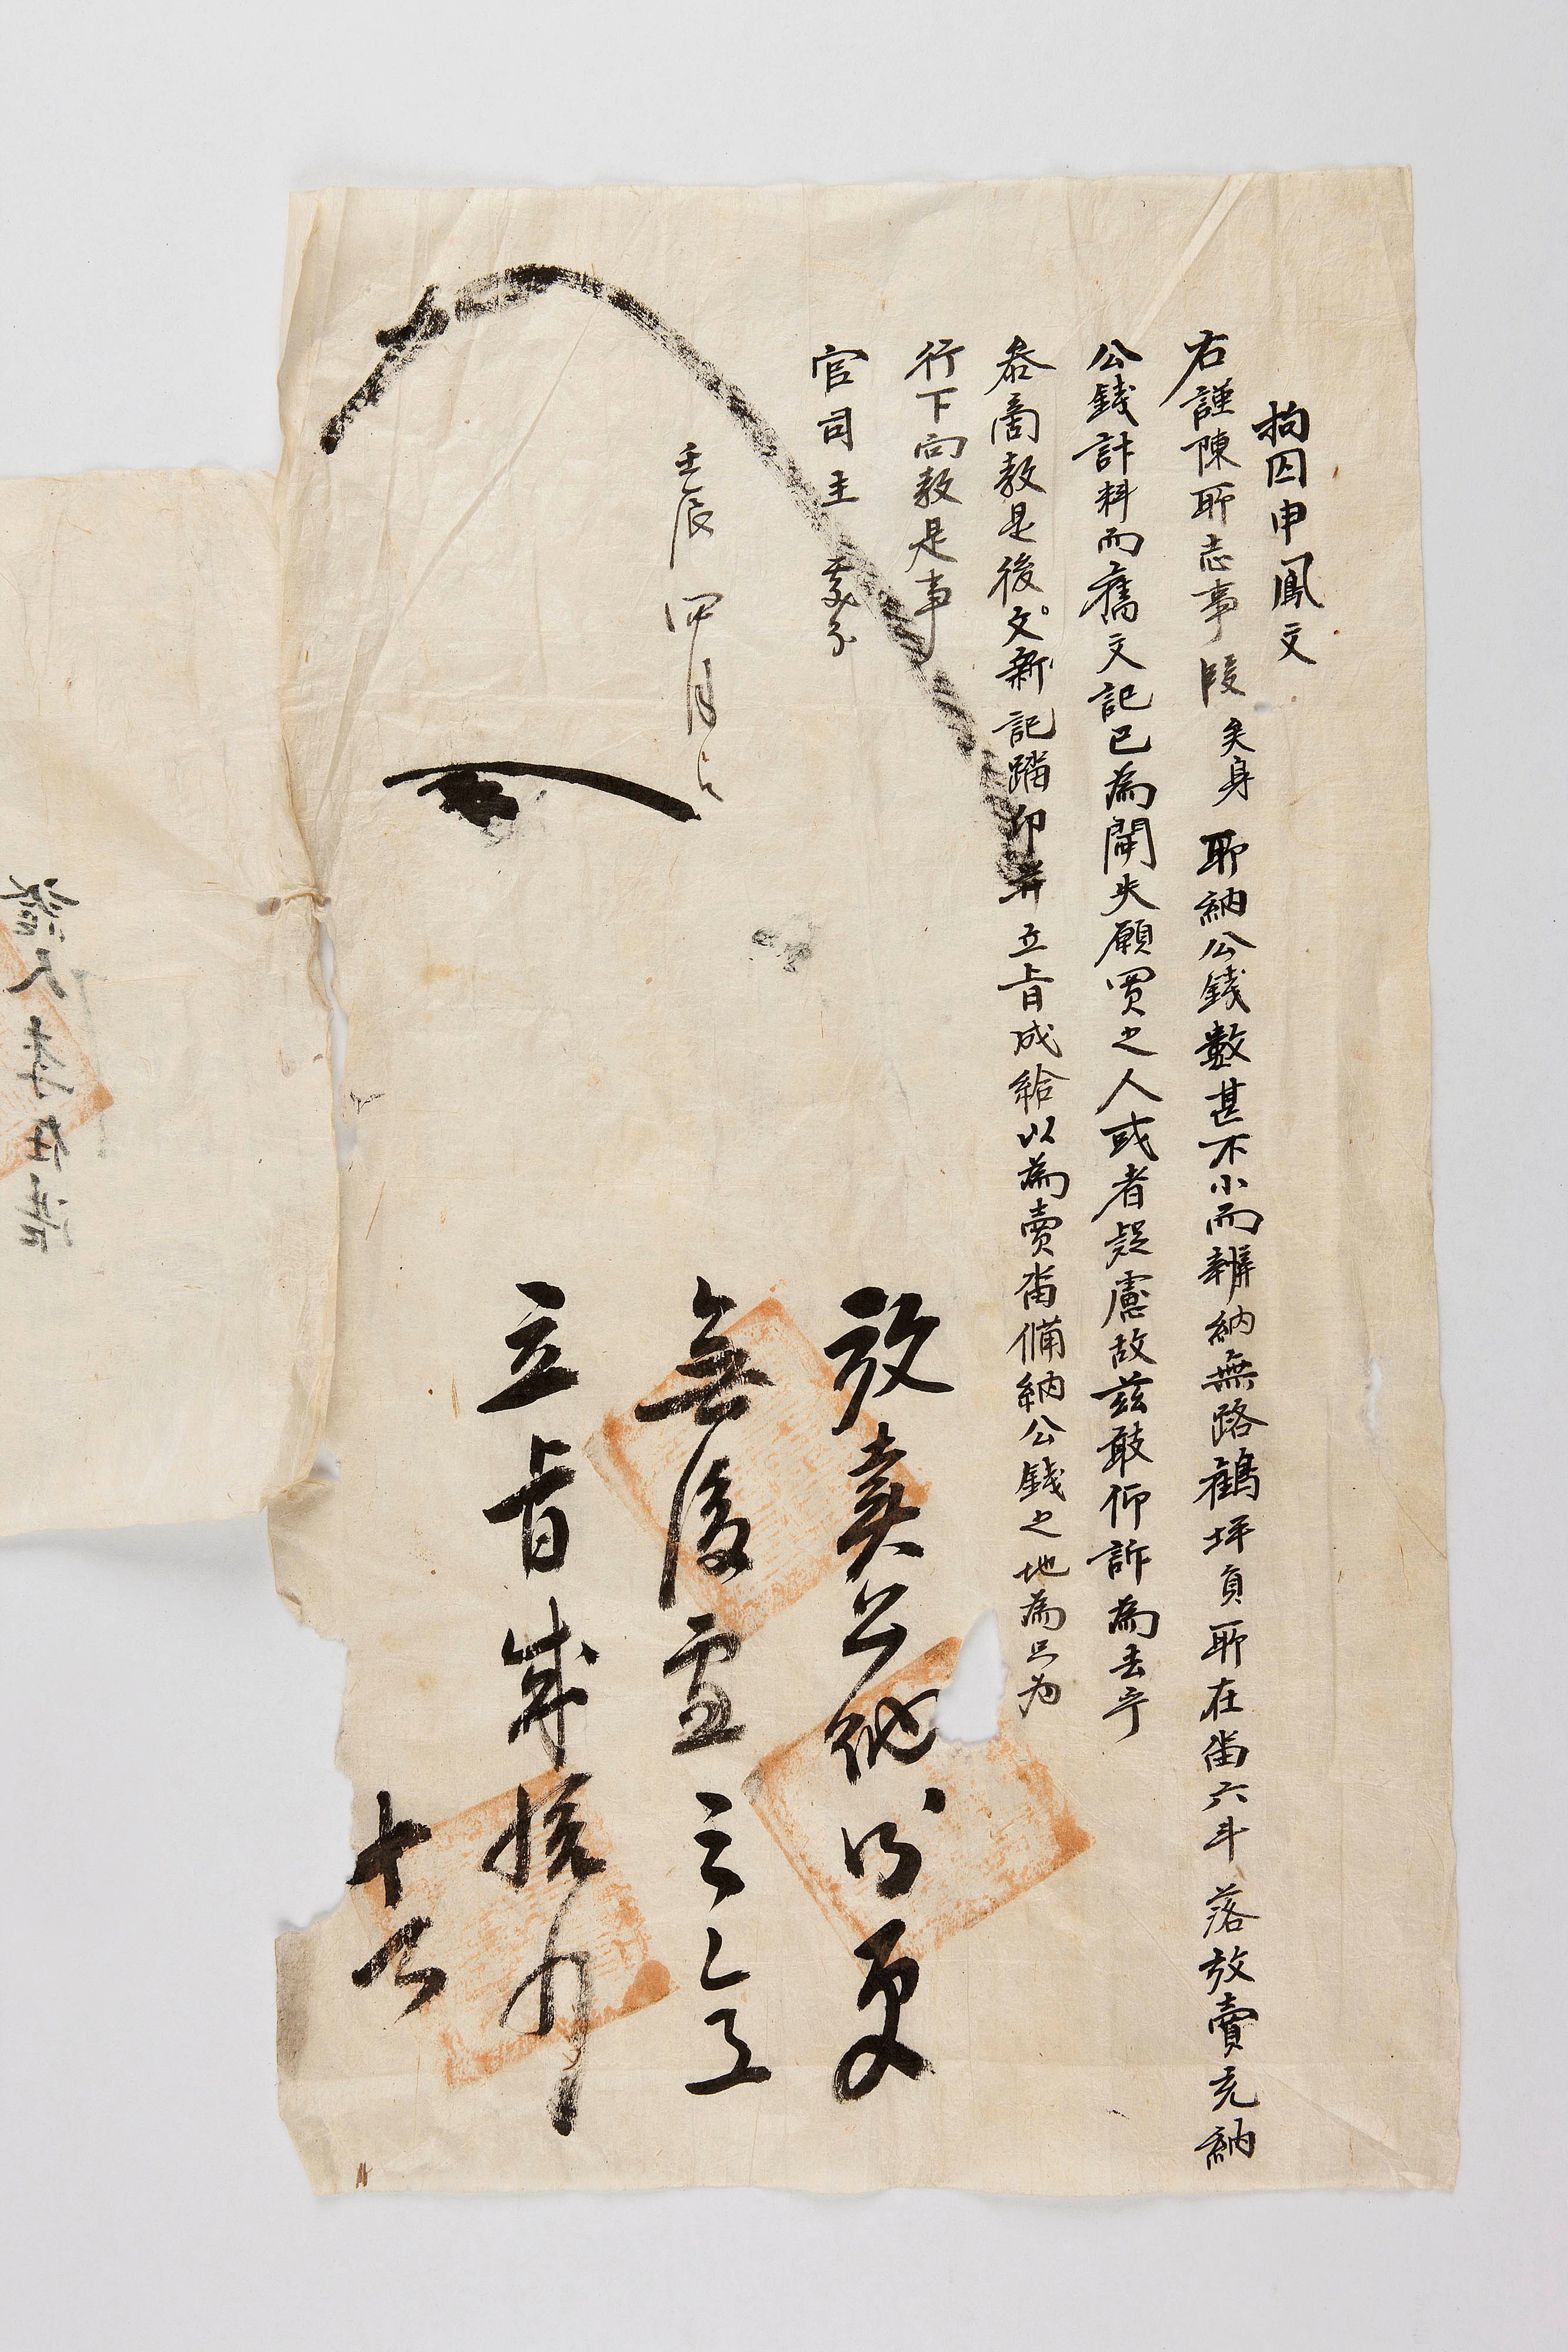 拘囚申鳳文
右謹陳所志事段矣身所納公錢數甚不小而辦納無路鶴坪員所在畓六斗落放賣充納
公錢計料而舊文記已為閪失願買之人或者疑慮故玆敢仰訴為去乎
叅商敎是後文新記踏印并立旨成給以為賣畓備納公錢之地為只為
行下向敎是事
官司主 處分
壬辰四月日
放賣公納以更
無後慮之乙仍于
立旨成給向事
十六
證人李